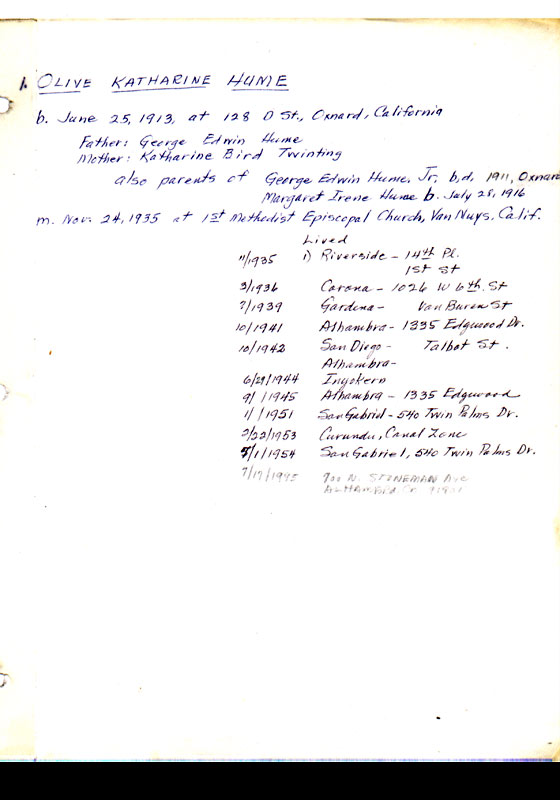 1. OLIVE KATHARINE HUME
b. June 25, 1913, at 128 D St., Oxnard, California
Father: George Edwin Hume
Mother: Katharine Bird Twinting
also parents of George Edwin Hume, Jr, b,d. 1911, Oxnard
Margaret Irene Hume b. July 28, 1916
m. Nov. 24, 1935 at 1st Methodist Episcopal Church, Van Nuys, Calif.
Lived
11/1935 1) Riverside - 14th Pl.
1st St
3/1936 Corona - 1026 W 6th St
7/1939 Gardena - Van Buren St
10/1941 Alhambra - 1335 Edgwood Dr.
10/1942 San Diego - Talbot St.
Alhambra -
6/29/1944 Inyokern
9/ /1945 Alhambra - 1335 Edgewood
1/ /1951 San Gabriel - 540 Twin Palms Dr.
2/22/1953 Curundu, Canal Zone
/1/1954 San Gabriel, 540 Twin Palms Dr.
7/17/1995 900 N. STONEMAN Ave
ALHAMBRA, CA 91801